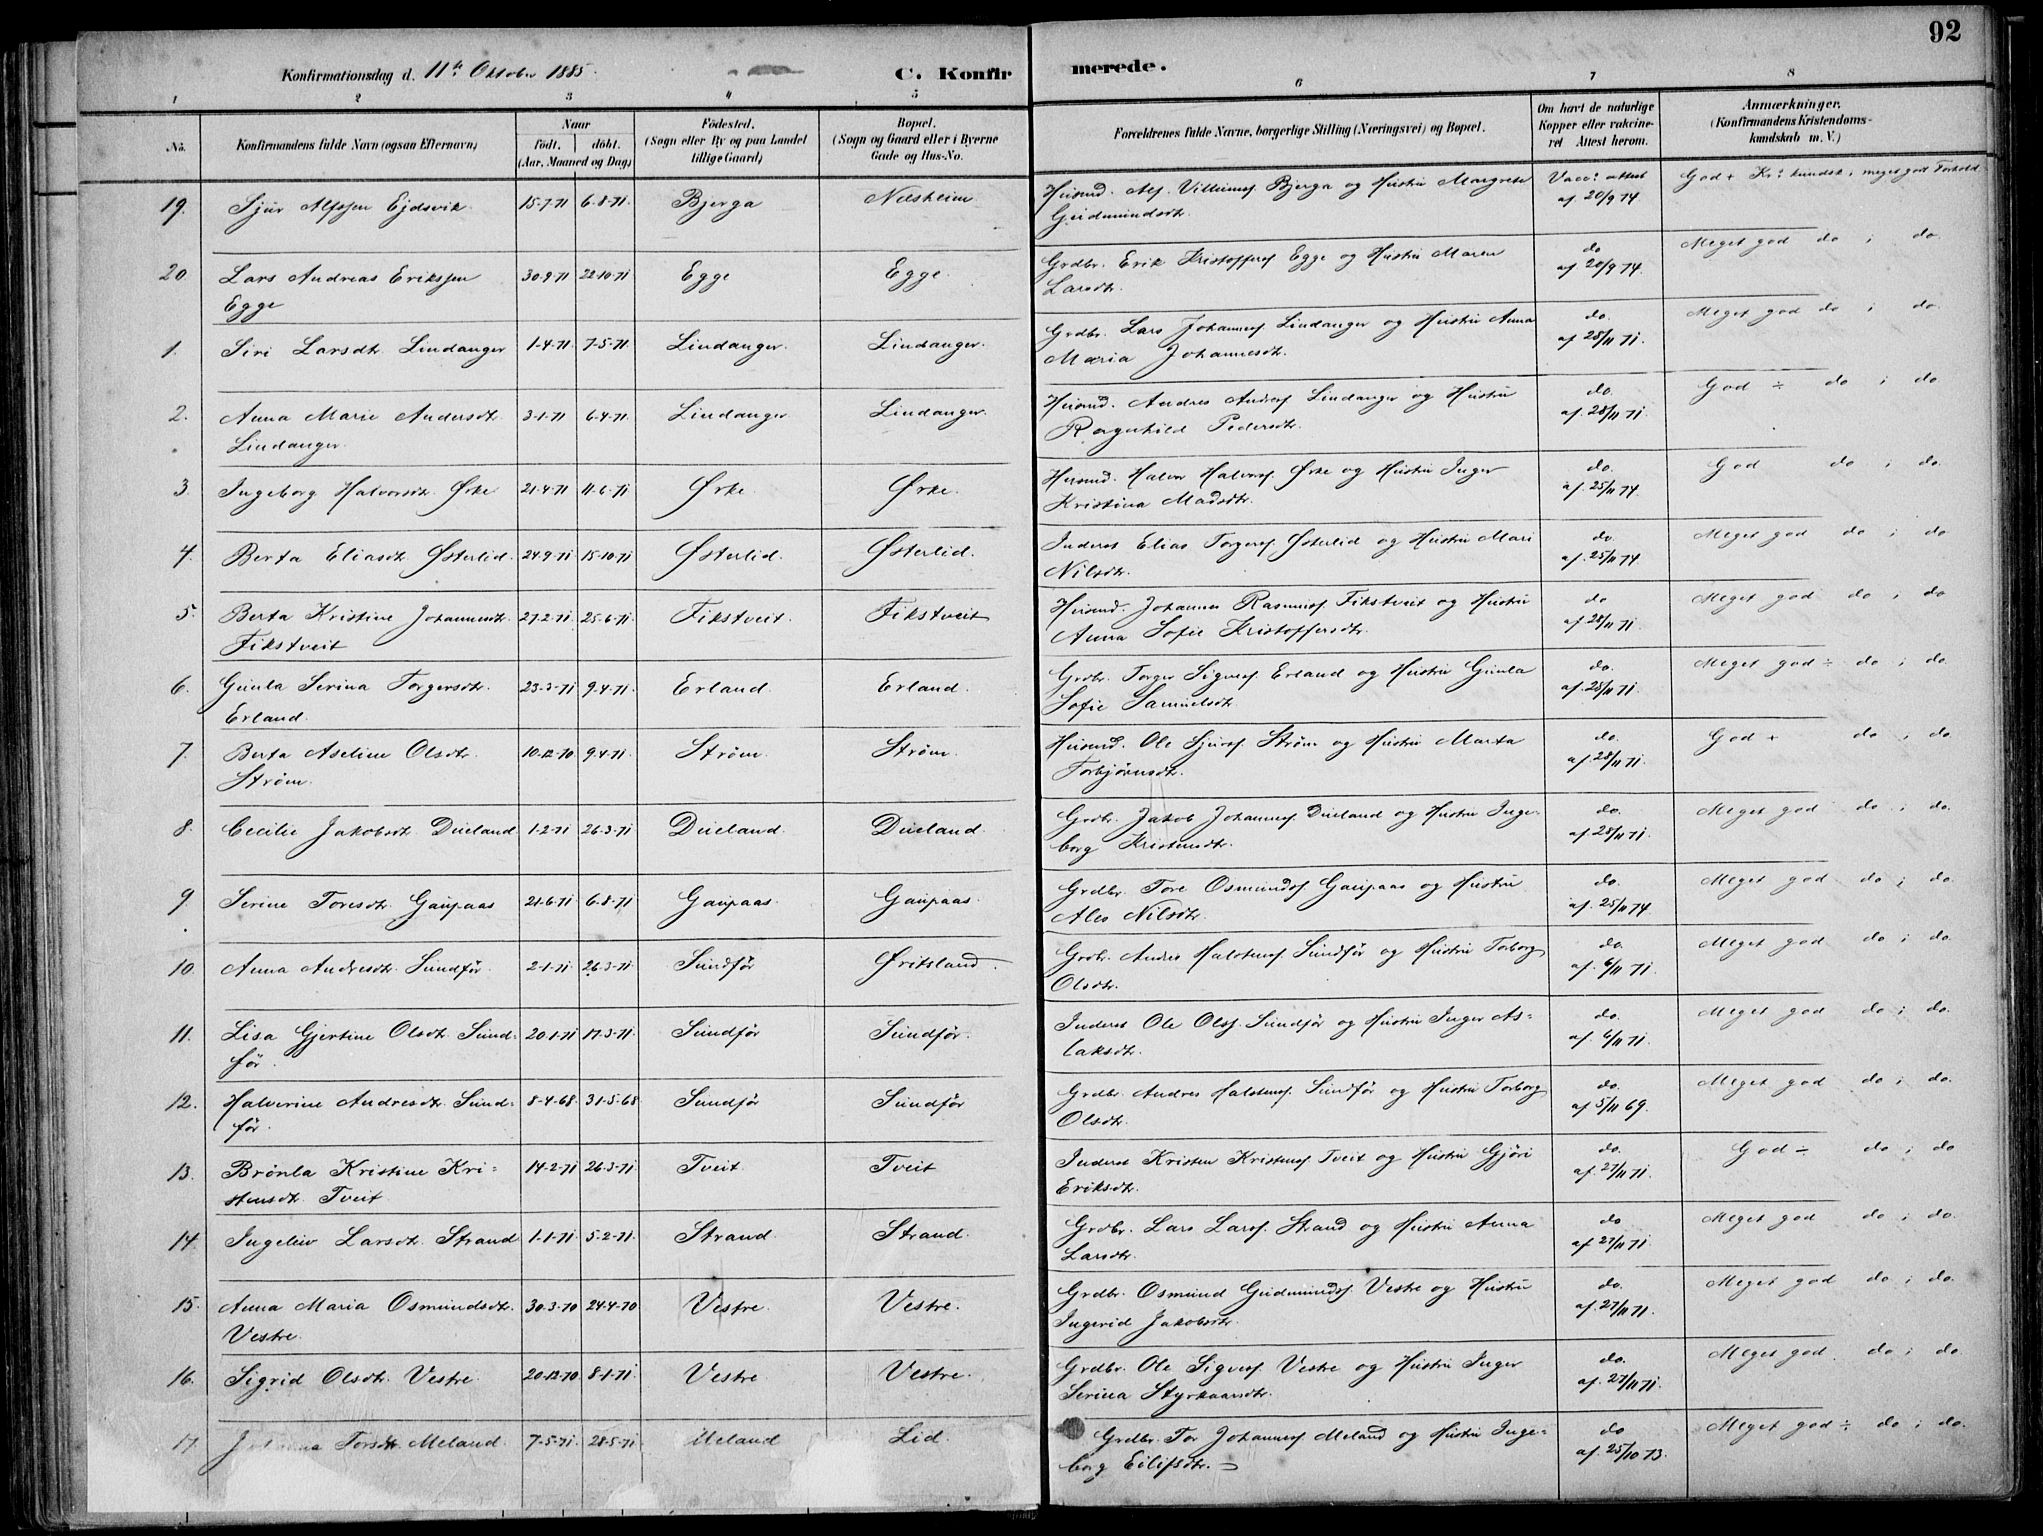 92
Konfirmationsdag d. 11te Oktober 1885.
C. Konfirmerede.
1 2 3 4 5 6 7 8
No. Konfirmandens fulde Navn (ogsaa Efternavn)
Naar
födt. döbt.
(Aar, Maaned og Dag)
Födested.
(Sogn eller By og paa Landet
tillige Gaard)
Bopæl.
(Sogn og Gaard eller i Byerne
Gade og Hus-No.
Forældrenes fulde Navne, borgerlige Stilling (Næringsvei) og Bopæl.
Om havt de naturlige
Kopper eller vakcine-
ret Attest herom.
Anmærkninger.
(Konfirmandens Kristendoms-
kundskab m. V.)
19. Sjur Alfssen Ejdsvik 15-7-71 6-8-71. Bjerga Næsheim Husmd. Alf Villumsf. Bjerga og Hustru Margrete Vacc: attest God + Kr: kundsk; meget godt Forhold
Gudmundsdtr. af 20/9 74.
20 Lars Andreas Erikssen 30-9-71 22-10-71 Egge Egge. Grdbr. Erik Kristoffersf Egge og Hustru Maren do Meget god do ; do.
Egge Larsdtr. af 20/9 74.
1. Siri Larsdtr. Lindanger 1-4-71. 7-5-71. Lindanger. Lindanger. Grdbr. Lars Johannesf. Lindanger og Hustru Anna do. Meget god do ; do.
Maria Johannesdtr. af 28/11 71.
2. Anna Marie Andersdtr. 3-1-71 6-4-71. Lindanger Lindanger. Husmd. Andres Andresf Lindanger og Hustru do. God ÷ do ; do
Lindanger. Ragnhild Pedersdtr. af 28/11 71.
3. Ingeborg Halvorsdtr. Ørke 21-4-71 11-6-71 Ørke. Ørke. Husmd. Halvor Halvorsf. Ørke og Hustru Inger do. God do ; do.
Kristina Madsdtr. af. 25/11 74.
4. Berta Eliasdtr. Østerlid. 24-9-71 15-10-71 Østerlid. Østerlid. Inderst Elias Torgersf. Østerlid og Hustru Mari do. Meget god do ; do
Nilsdtr. af. 25/11 74
5. Berta Kristine Johannesdtr. 27-2-71 25-6-71. Fikstveit. Fikstveit Husmd. Johannes Rasmusf Fikstveit og Hustru do Meget god do ; do
Fikstveit Anna Sofie Kristoffersdtr. af 28/11 71.
6. Gunla Serina Torgersdtr. 23-3-71 9-4-71. Erland. Erland. Grdbr. Torger Sigvesf Erland og Hustru Gunla do. Meget god ÷ do ; do
Erland. Sofie Samuelsdtr. af. 28/11 71.
7. Berta Aseline Olsdtr. 10-12-70 9-4-71 Strøm. Strøm. Husmd. Ole Sjursf. Strøm og Hustru Marta do. God + do ; do.
Strøm. Torbjørnsdtr. af. 28/11 71.
8. Cecilie Jakobsdtr. Dueland 1-2-71 26-3-71. Dueland. Dueland. Grdbr. Jakob Johannesf Dueland og Hustru Inge- do. Meget god do ; do.
borg Kristensdtr. af 28/11 71.
9 Serine Toresdtr. Gaupaas 21-6-71 6-8-71 Gaupaas. Gaupaas. Grdbr. Tore Osmundsf Gaupaas og Hustru do. Meget god do ; do.
Ales Nilsdtr. af. 25/11 74
10. Anna Andresdtr. Sundfør. 2-1-71 26-3-71. Sundfør Øritsland. Grdbr. Andres Halstensf. Sundfør og Hustru Torborg do. Meget god do ; do.
Olsdtr. af. 6/11 71.
11. Lisa Gjertine Olsdtr. Sund- 20-1-71 17-3-71. Sundfør Sundfør. Inderst Ole Olsf. Sundfør og Hustru Inger As- do. Meget god do ; do.
før. laksdtr. af. 6/11 71.
12. Halverine Andresdtr. Sund- 8-4-68. 31-5-68. Sundfør Sundfør Grdbr. Andres Halstensf. Sundfør og Hustru Torborg do. Meget god do ; do.
før. Olsdtr. af 5/11 69.
13. Brønla Kristine Kri- 14-2-71 26-3-71 Tveit Tveit Inderst Kristen Kristensf Tveit og Hustru Gjøri do. God ÷ do ; do
stensdtr. Tveit Eriksdtr. af. 27/11 71.
14. Ingeleiv Larsdtr. Strand 1-1-71. 5-2-71. Strand. Strand. Grdbr. Lars Larsf. Strand og Hustru Anna do Meget god do ; do.
Larsdtr. af 27/11 71.
15. Anna Maria Osmundsdtr. 30-3-70 24-4-70 Vestre. Vestre. Grdbr. Osmund Gudmundsf Vestre og Hustru do. Meget god do ; do.
Vestre. Ingerid Jakobsdtr. af. 27/11 71.
16. Sigrid Olsdtr. Vestre 20-12-70 8-1-71. Vestre Vestre. Grdbr. Ole Sigvesf Vestre og Hustru Inger do. Meget god. do ; do.
Serina Styrkaarsdtr. af. 27/11 71.
17. Torsdtr. Meland. 7-5-71. 28-5-71 Meland Lid. Grdbr. Tor Johannesf. Meland og Hustru Inge- do Meget god ÷ do ; do.
borg Eilifsdtr. af 25/10 73.